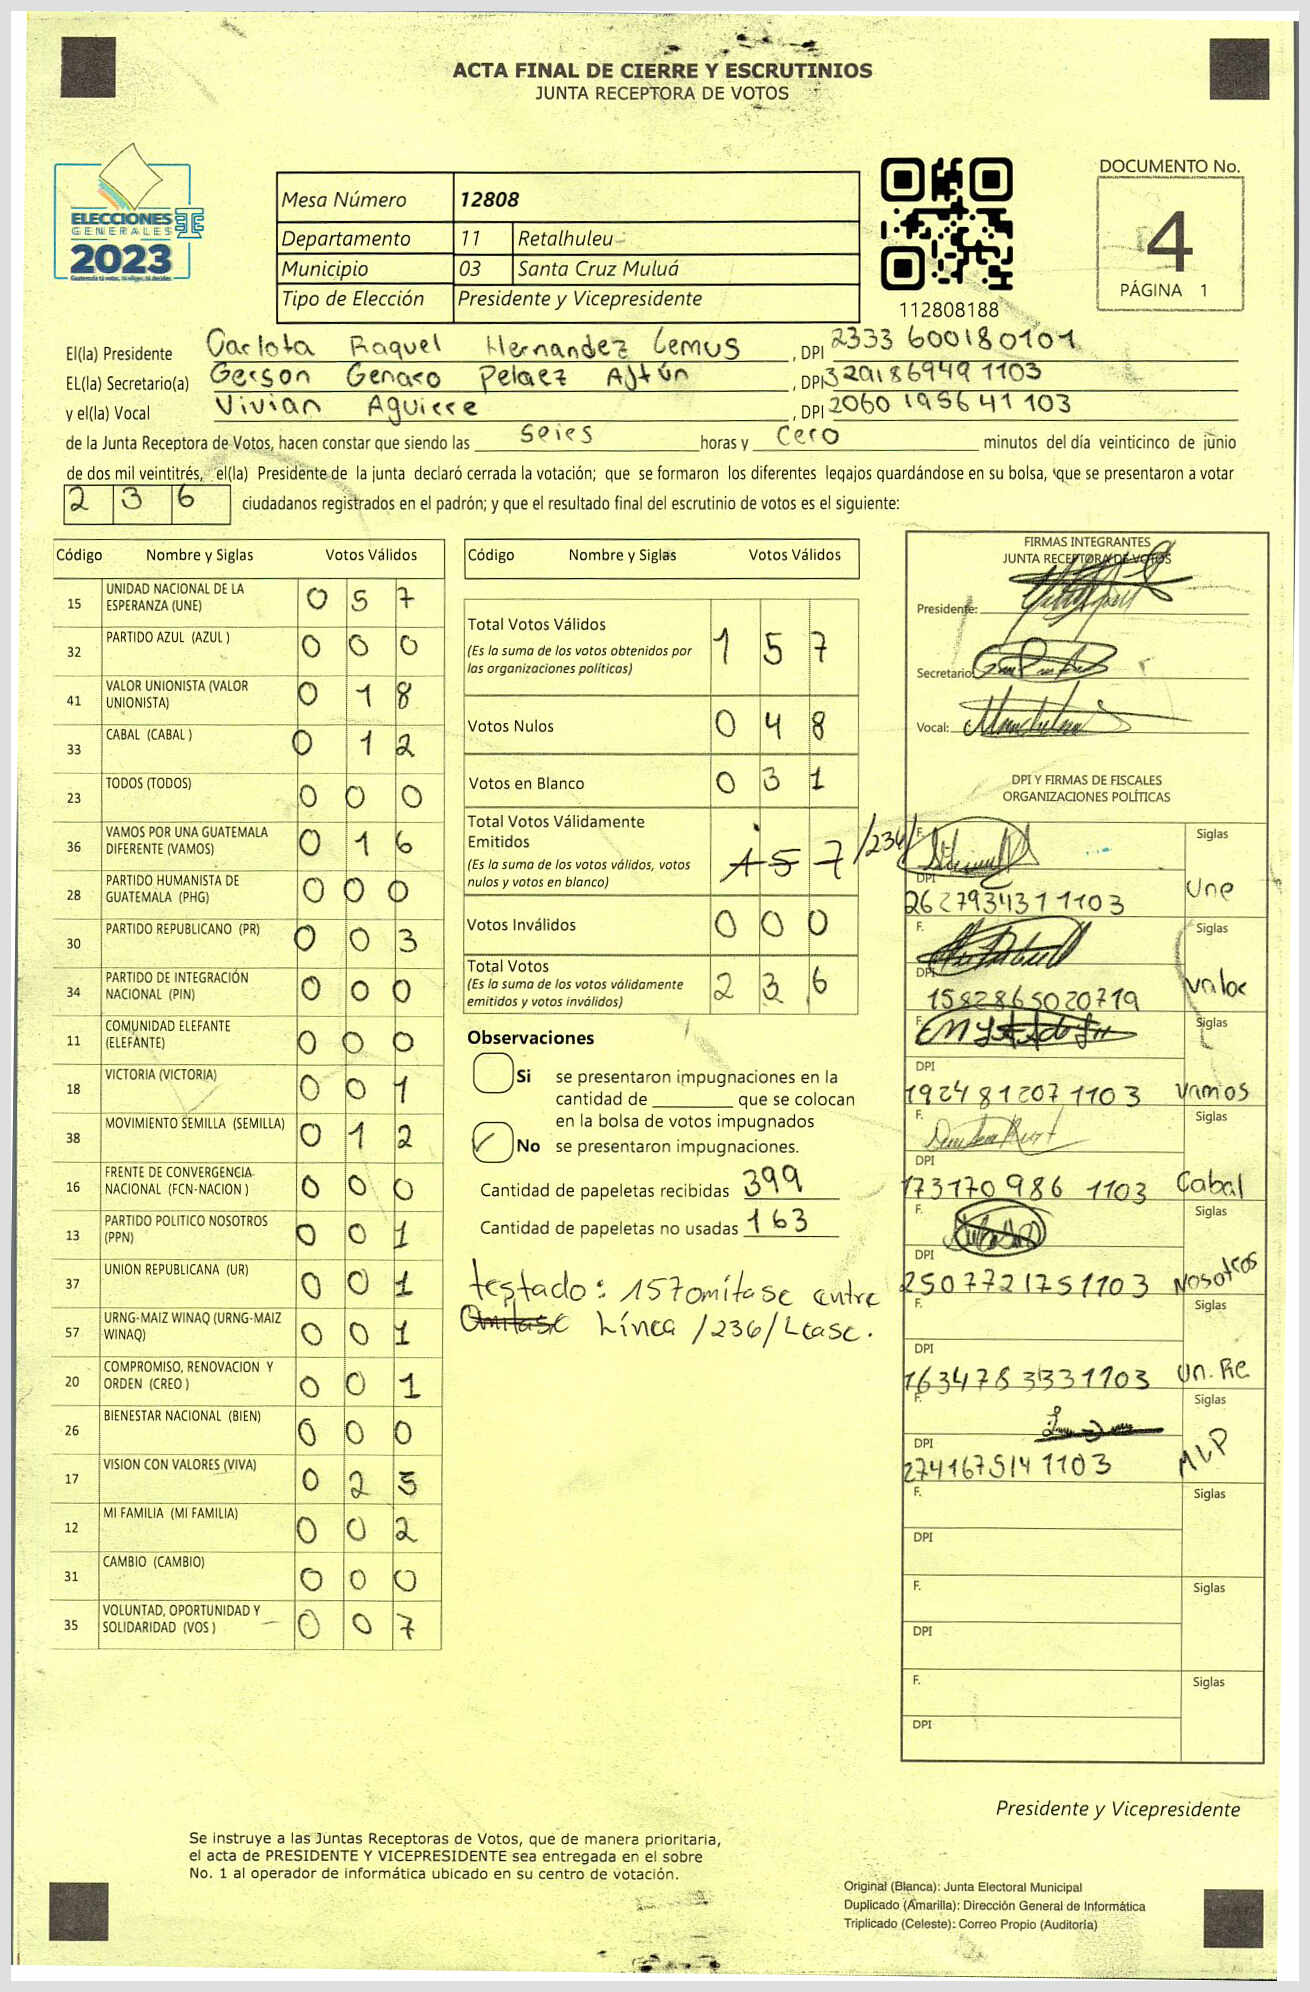 ACTA FINAL DE CIERRE Y ESCRUTINIOS
JUNTA RECEPTORA DE VOTOS
ELECCIONES
GENERALES
2023
Mesa Número 12808
Departamento 11 Retalhuleu
Municipio 03 Santa Cruz Muluá
Tipo de Elección Presidente y Vicepresidente
112808188
DOCUMENTO No.
4
PÁGINA 1
El(la) Presidente Carlota Raquel Hernandez Lemus, DPI 2333 600180101
EL(la) Secretario(a) Gerson Genaro Pelaez Ajtún, DPI 320186949 1103
y el(la) Vocal Vivian Aguirre, DPI 2060 195641103
de la Junta Receptora de Votos, hacen constar que siendo las seies horas y cero minutos del día veinticinco de junio
de dos mil veintitrés, el(la) Presidente de la junta declaró cerrada la votación; que se formaron los diferentes legajos guardándose en su bolsa, que se presentaron a votar
2 3 6 ciudadanos registrados en el padrón; y que el resultado final del escrutinio de votos es el siguiente:
Código Nombre y Siglas Votos Válidos
15 UNIDAD NACIONAL DE LA ESPERANZA (UNE) 0 5 7
32 PARTIDO AZUL (AZUL ) 0 0 0
41 VALOR UNIONISTA (VALOR UNIONISTA) 0 1 8
33 CABAL (CABAL ) 0 1 2
23 TODOS (TODOS) 0 0 0
36 VAMOS POR UNA GUATEMALA DIFERENTE (VAMOS) 0 1 6
28 PARTIDO HUMANISTA DE GUATEMALA (PHG) 0 0 0
30 PARTIDO REPUBLICANO (PR) 0 0 3
34 PARTIDO DE INTEGRACIÓN NACIONAL (PIN) 0 0 0
11 COMUNIDAD ELEFANTE (ELEFANTE) 0 0 0
18 VICTORIA (VICTORIA) 0 0 1
38 MOVIMIENTO SEMILLA (SEMILLA) 0 1 2
16 FRENTE DE CONVERGENCIA NACIONAL (FCN-NACION ) 0 0 0
13 PARTIDO POLITICO NOSOTROS (PPN) 0 0 1
37 UNION REPUBLICANA (UR) 0 0 1
57 URNG-MAIZ WINAQ (URNG-MAIZ WINAQ) 0 0 1
20 COMPROMISO, RENOVACION Y ORDEN (CREO ) 0 0 1
26 BIENESTAR NACIONAL (BIEN) 0 0 0
17 VISION CON VALORES (VIVA) 0 2 5
12 MI FAMILIA (MI FAMILIA) 0 0 2
31 CAMBIO (CAMBIO) 0 0 0
35 VOLUNTAD, OPORTUNIDAD Y SOLIDARIDAD (VOS ) 0 0 7
Código Nombre y Siglas Votos Válidos
Total Votos Válidos 1 5 7
(Es la suma de los votos obtenidos por
las organizaciones políticas)
Votos Nulos 0 4 8
Votos en Blanco 0 3 1
Total Votos Válidamente
Emitidos 1 5 7 /236/
(Es la suma de los votos válidos, votos
nulos y votos en blanco)
Votos Inválidos 0 0 0
Total Votos 2 3 6
(Es la suma de los votos válidamente
emitidos y votos inválidos)
Observaciones
Si se presentaron impugnaciones en la
cantidad de ________ que se colocan
en la bolsa de votos impugnados
No se presentaron impugnaciones.
Cantidad de papeletas recibidas 399
Cantidad de papeletas no usadas 163
testado: 157 omítase entre
Omitase Línea /236/ Lease.
FIRMAS INTEGRANTES
JUNTA RECEPTORA DE VOTOS
Presidente:
Secretario
Vocal:
DPI Y FIRMAS DE FISCALES
ORGANIZACIONES POLÍTICAS
F. Siglas
DPI
262793431 1103 Une
F. Siglas
DPI
1582865020719 Valor
F. Siglas
DPI
192481207 1103 Vamos
F. Siglas
DPI
173170 986 1103 Cabal
F. Siglas
DPI
2507721751103 Nosotros
F. Siglas
DPI
1634783331103 Un. Re
F. Siglas
DPI
274167514 1103 MLP
F. Siglas
DPI
F. Siglas
DPI
F. Siglas
DPI
Presidente y Vicepresidente
Se instruye a las Juntas Receptoras de Votos, que de manera prioritaria,
el acta de PRESIDENTE Y VICEPRESIDENTE sea entregada en el sobre
No. 1 al operador de informática ubicado en su centro de votación.
Original (Blanca): Junta Electoral Municipal
Duplicado (Amarilla): Dirección General de Informática
Triplicado (Celeste): Correo Propio (Auditoría)